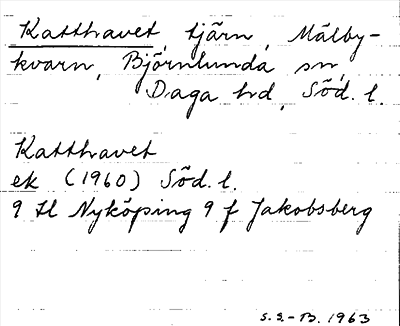 Katthavet, tjärn, Mälby-
kvarn, Björnlunda sn,
Daga hd, Söd. l.
Katthavet
ek (1960) Söd. l.
9 H Nyköping 9 f Jakobsberg
S.S.-B. 1963